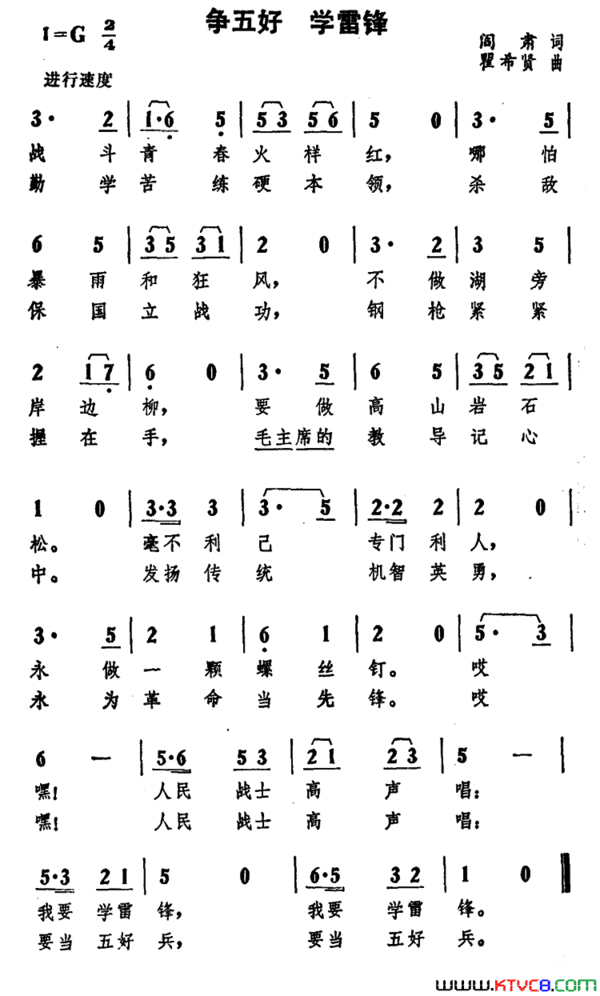 争五好 学雷锋
1=G 2/4
阎肃词
瞿希贤曲
进行速度
3· 2 | 1·6 5 | 5 3 5 6 | 5 0 | 3· 5 |
战斗青春火样红，哪怕
勤学苦练硬本领，杀敌
6 5 | 3 5 3 1 | 2 0 | 3· 2 | 3 5 |
暴雨和狂风，不做湖旁
保国立战功，钢枪紧紧
2 1 7 | 6 0 | 3· 5 | 6 5 | 3 5 2 1 |
岸边柳，要做高山岩石
握在手，毛主席的教导记心
1 0 | 3·3 3 | 3· 5 | 2·2 2 | 2 0 |
松。毫不利己专门利人，
中。发扬传统机智英勇，
3· 5 | 2 1 | 6 1 | 2 0 | 5· 3 |
永做一颗螺丝钉。哎
永为革命当先锋。哎
6 — | 5·6 5 3 | 2 1 2 3 | 5 — |
嘿！人民战士高声唱：
嘿！人民战士高声唱：
5·3 2 1 | 5 0 | 6·5 3 2 | 1 0 ‖
我要学雷锋，我要学雷锋。
要当五好兵，要当五好兵。
www.KTVC8.com